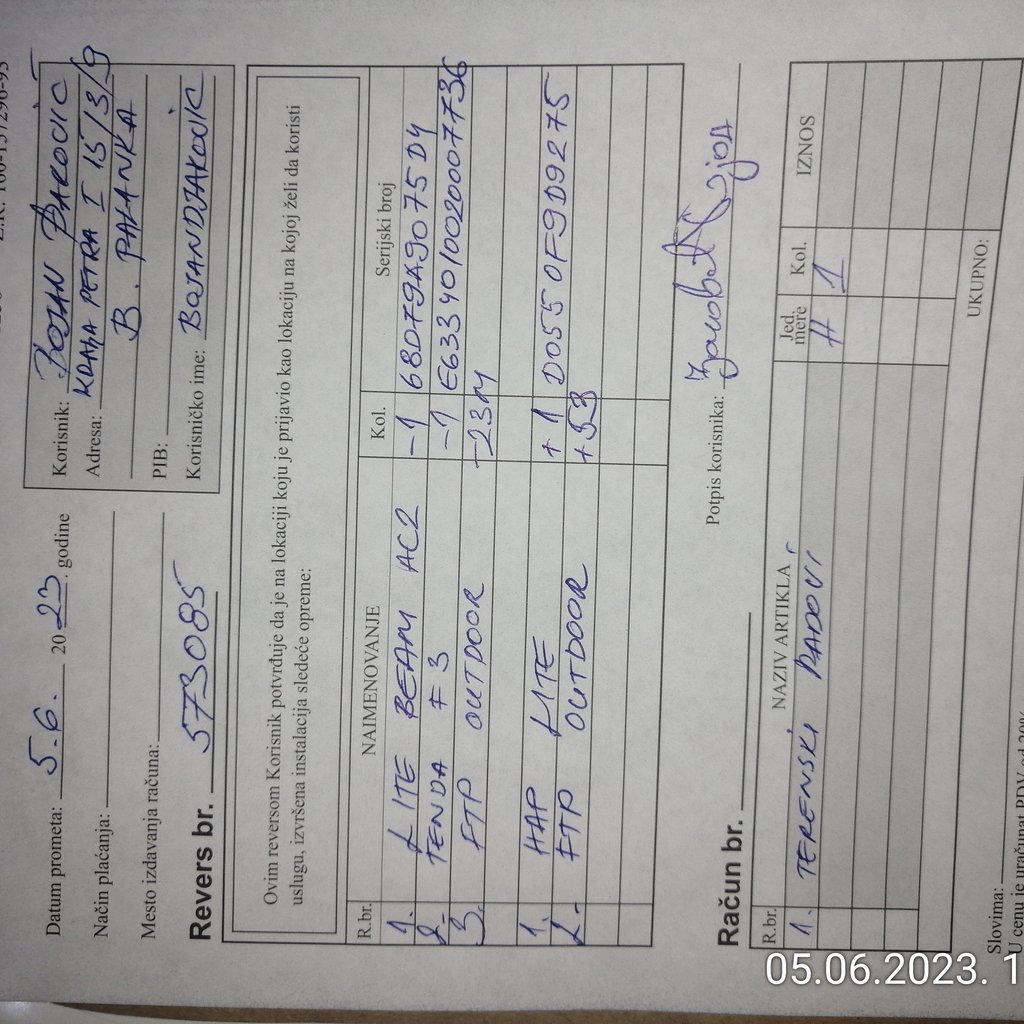 Datum prometa: 5-6. 20 23. godine
Način plaćanja:
Mesto izdavanja računa:
Revers br. 573085
Korisnik: BOJAN ĐAKOVIĆ
Adresa: KRALJA PETRA I 15/3/9
B. PALANKA
PIB:
Korisničko ime: BOJANDJAKOVIC
Ovim reversom Korisnik potvrđuje da je na lokaciji koju je prijavio kao lokaciju na kojoj želi da koristi
uslugu, izvršena instalacija sledeće opreme:
R.br. NAIMENOVANJE Kol. Serijski broj
1. LITE BEAM AC2 -1 68D79A9075D4
2. TENDA F3 -1 E6334010020007736
3. FTP OUTDOOR -23M
1. HAP LITE +1 D0550F9D9275
2. FTP OUTDOOR +53
Potpis korisnika:
Račun br.
R.br. NAZIV ARTIKLA Jed. mere Kol. IZNOS
1. TERENSKI RADOVI H 1
UKUPNO:
Slovima:
U cenu je uračunat PDV od 20%
05.06.2023. 1